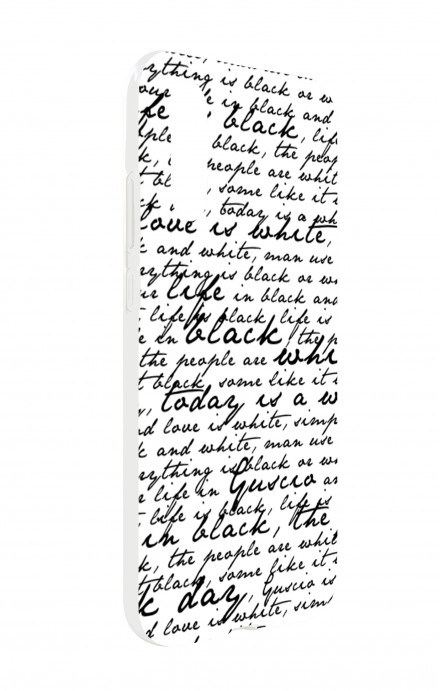 rything is black or w
our e in black and
fe black, life
ple black, the peop
k, people are whit
t bl , some like it i
, today is a wh
love is white,
k and white, man use
rything is black or wo
ur life in black and
t life is black, life is
e in black, the p
the people are whi
t black, some like it i
y, today is a w
nd love is white, simp
k and white, man use
rything is black or wo
r life in Guscio an
t life is black, life is
in black, the
k, the people are whit
t black, some like it i
k day, Guscio is
d love is white, sim